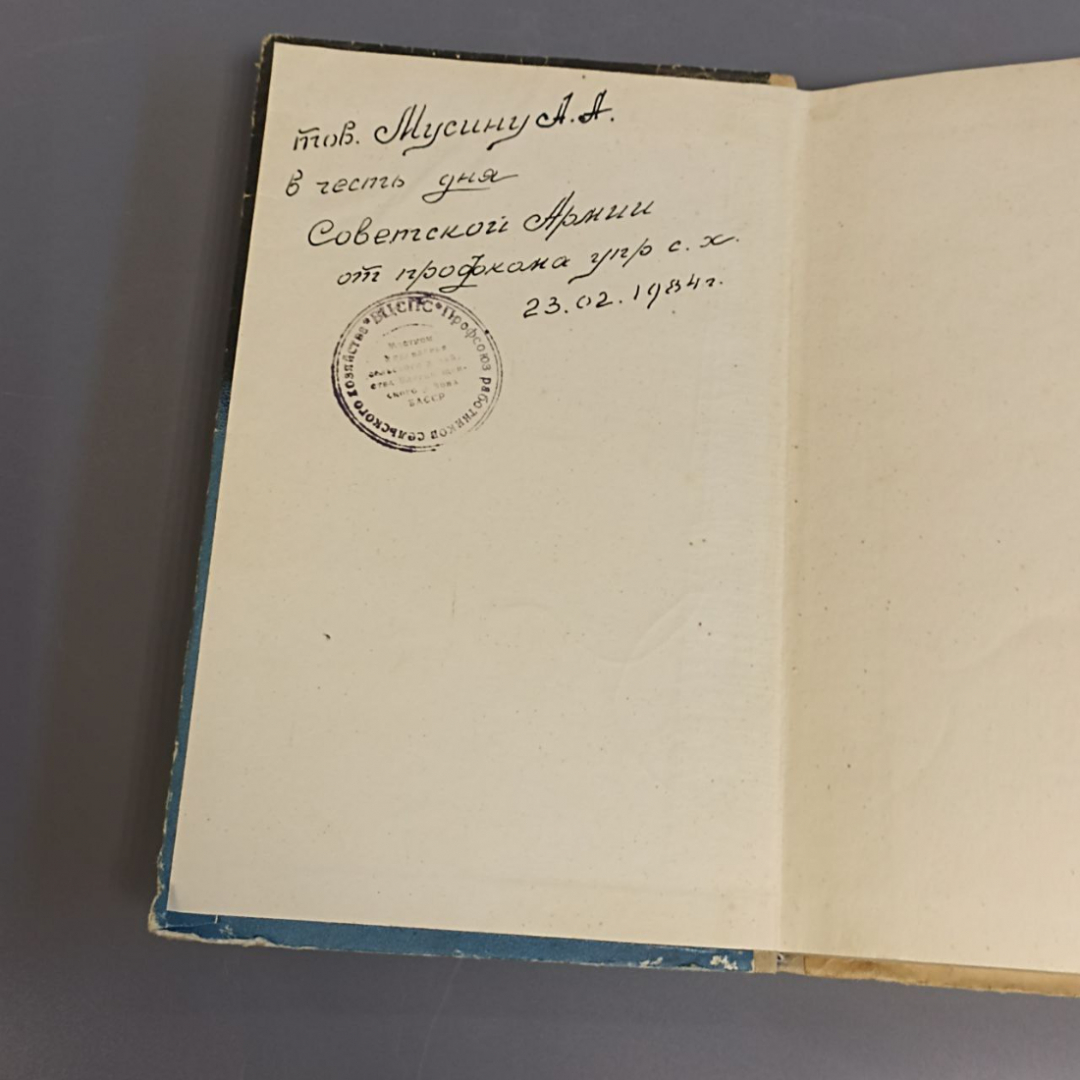 тов. Мусину А. А.
в честь дня
Советской Армии
от профкома упр с. х.
23.02.1984г.
ВЦСПС • Профсоюз работников сельского хозяйства •
БАССР